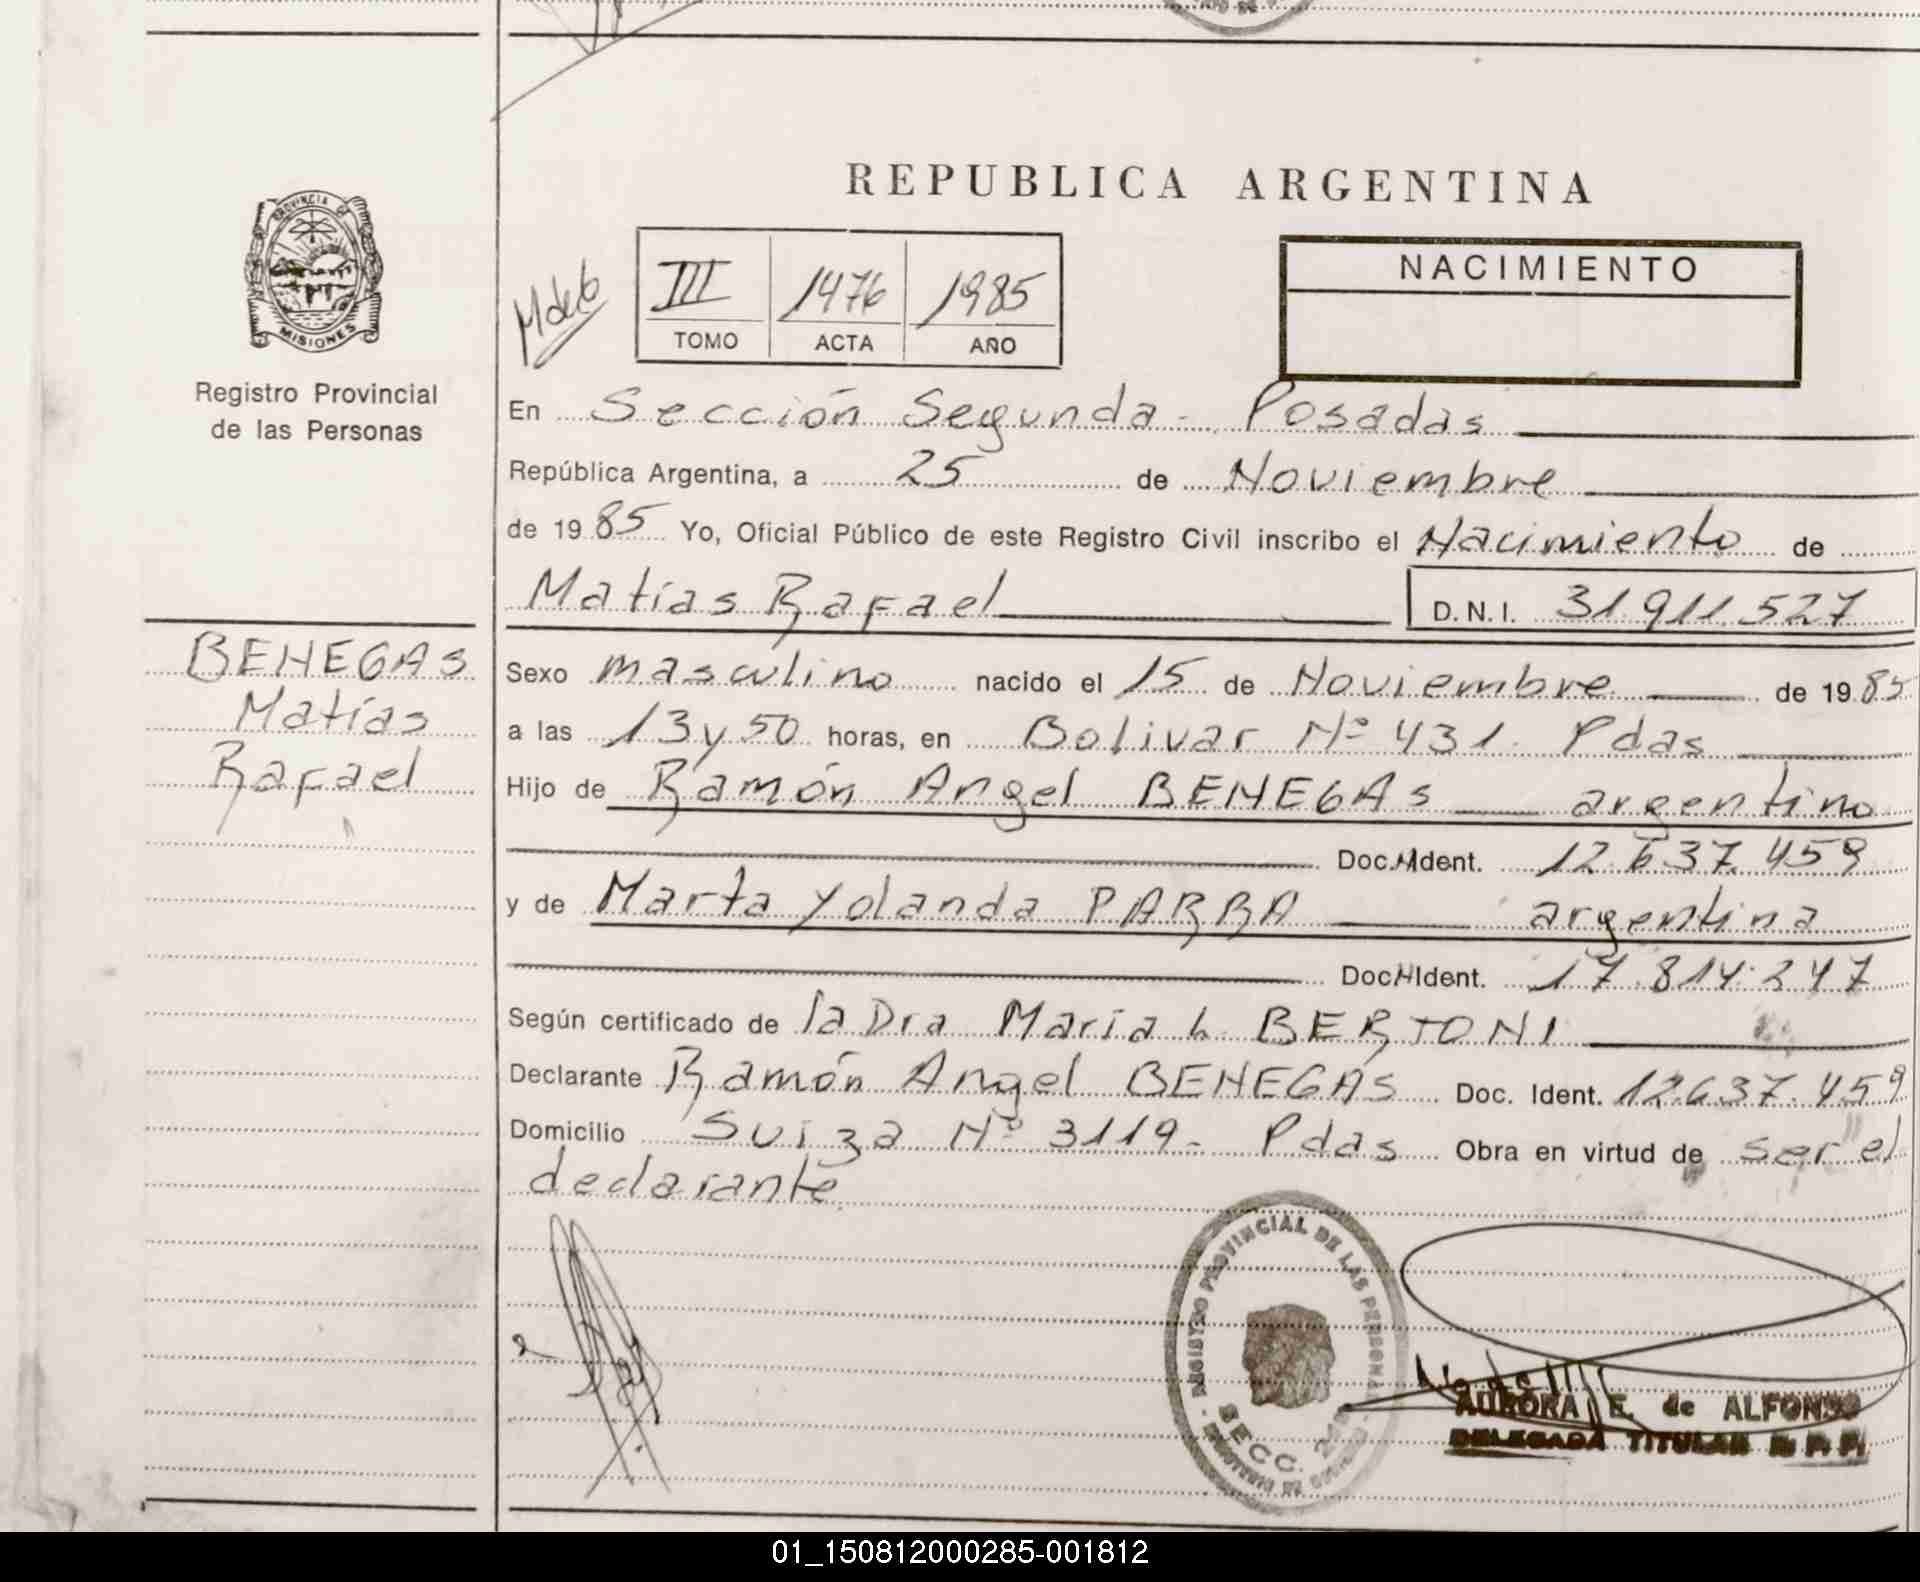 REPUBLICA ARGENTINA
PROVINCIA DE
MISIONES
Registro Provincial
de las Personas
III 1476 1985
TOMO ACTA AÑO
NACIMIENTO
En Sección Segunda - Posadas
República Argentina, a 25 de Noviembre
de 1985 Yo, Oficial Público de este Registro Civil inscribo el Nacimiento de
Matías Rafael D.N.I. 31.911.527
BENEGAS
Matías
Rafael
Sexo masculino nacido el 15 de Noviembre de 1985
a las 13 y 50 horas, en Bolivar Nº 431. Pdas
Hijo de Ramón Angel BENEGAS argentino
Doc. Ident. 12.637.459
y de Marta Yolanda PARRA argentina
Doc. Ident. 17.814.247
Según certificado de la Dra María L. BERTONI
Declarante Ramón Angel BENEGAS Doc. Ident. 12.637.459
Domicilio Suiza Nº 3119- Pdas Obra en virtud de ser el
declarante
REGISTRO PROVINCIAL DE LAS PERSONAS
SECC. 2da
AURORA E. de ALFONSO
DELEGADA TITULAR R. P. P.
01_150812000285-001812